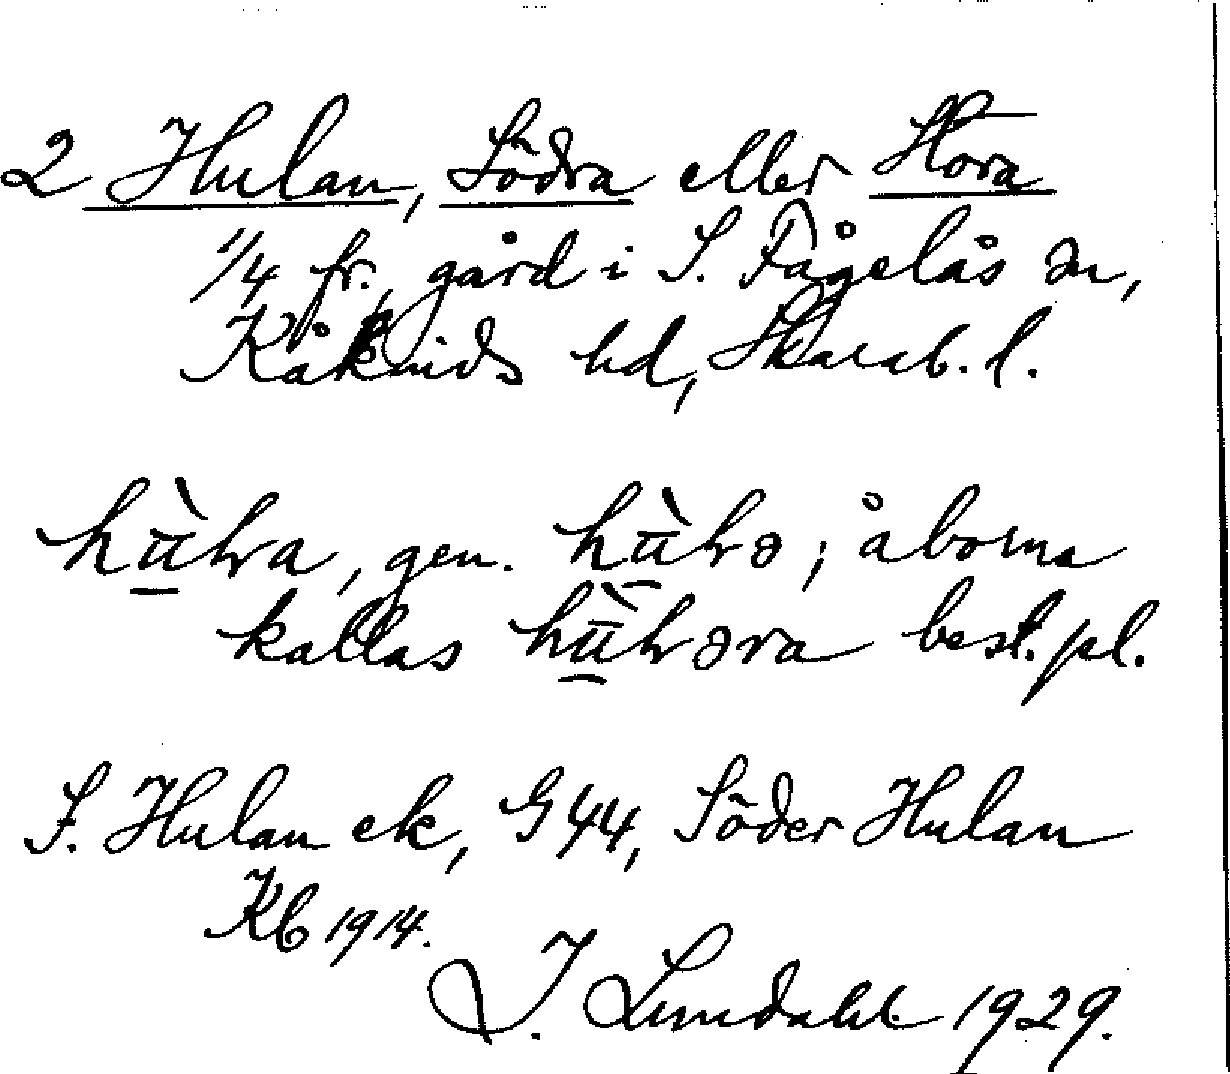 2 Hulan, Södra eller Stora
1/4 fr., gård i S. Fågelås sn,
Kåkinds hd, Skarab. l.
hùla, gen. hùlə; åborna
kallas hùləra best. pl.
S. Hulan ek, G 44, Söder Hulan
Kb 1914.
I. Lundahl 1929.